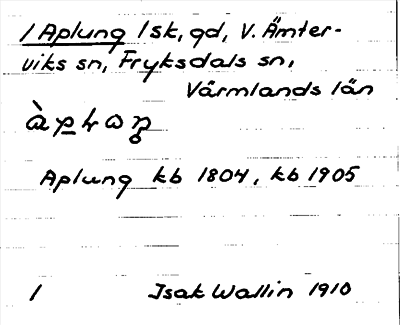 1 Aplung 1sk, gd, V. Ämter-
viks sn, Fryksdals sn,
Värmlands län
Aplung kb 1804, kb 1905
1 Isak Wallin 1910